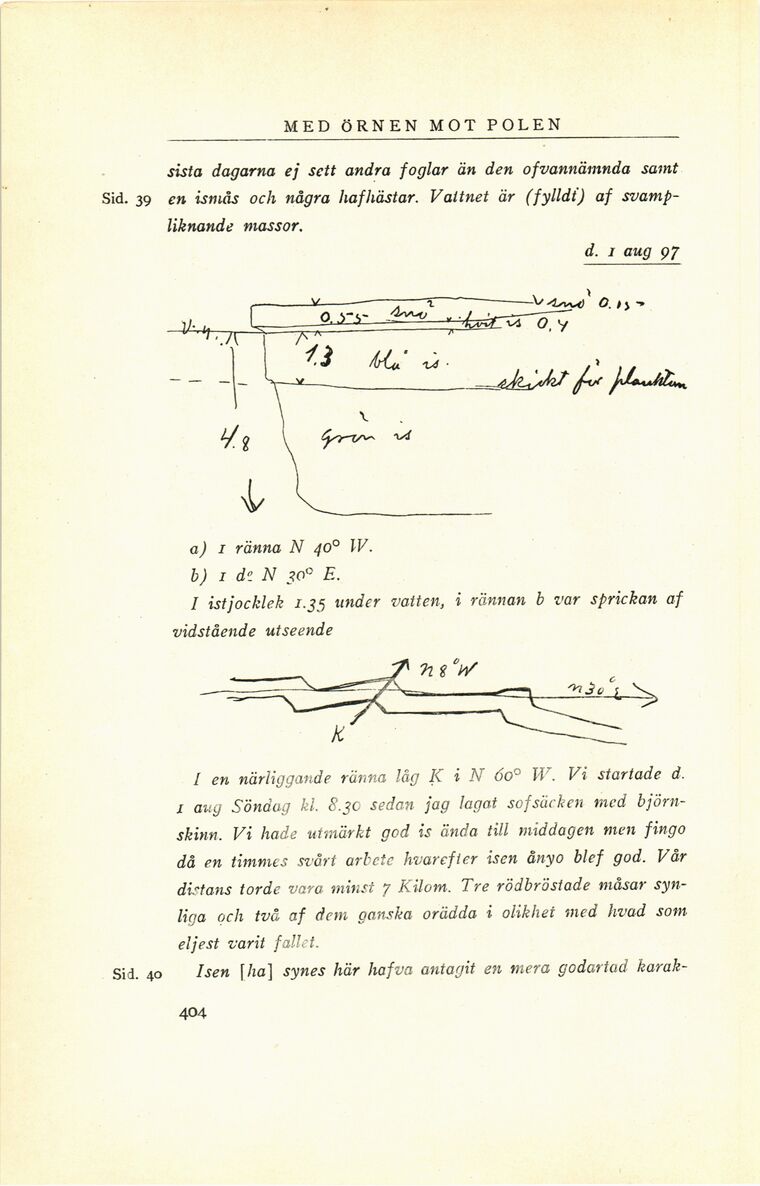 MED ÖRNEN MOT POLEN
sista dagarna ej sett andra foglar än den ofvannämnda samt
Sid. 39 en ismås och några hafhästar. Vattnet är (fylldt) af svamp-
liknande massor.
d. 1 aug 97
snö 0.15
0.55 snö
hvit is 0,4
V.y.
1.3 blå is.
skickt för plankton
4.8 grön is
a) 1 ränna N 40° W.
b) 1 d:o N 30° E.
I istjocklek 1.35 under vatten, i rännan b var sprickan af
vidstående utseende
N 8° W
N 30° E
K
I en närliggande ränna låg K i N 60° W. Vi startade d.
1 aug Söndag kl. 8.30 sedan jag lagat sofsäcken med björn-
skinn. Vi hade utmärkt god is ända till middagen men fingo
då en timmes svårt arbete hvarefter isen ånyo blef god. Vår
distans torde vara minst 7 Kilom. Tre rödbröstade måsar syn-
liga och två af dem ganska orädda i olikhet med hvad som
eljest varit fallet.
Sid. 40 Isen [ha] synes här hafva antagit en mera godartad karak-
404